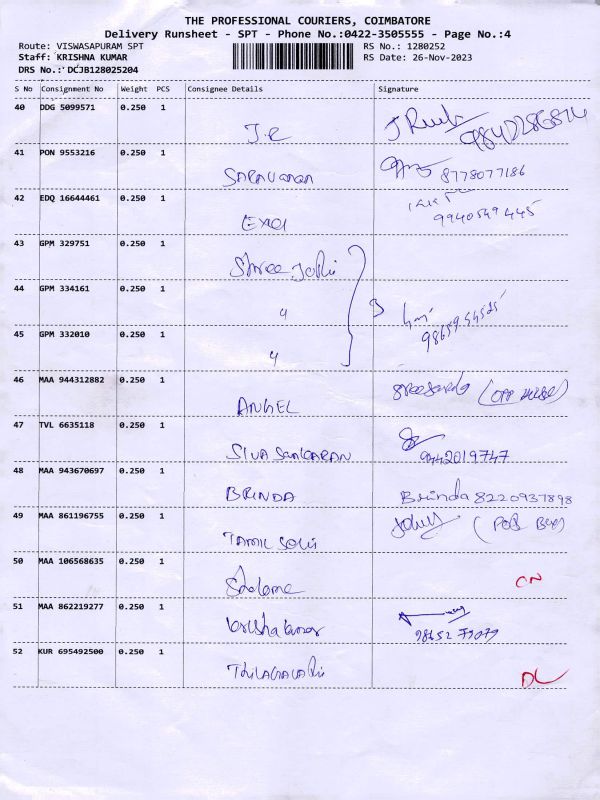 THE PROFESSIONAL COURIERS, COIMBATORE
Delivery Runsheet - SPT - Phone No.:0422-3505555 - Page No.:4
Route: VISWASAPURAM SPT RS No.: 1280252
Staff: KRISHNA KUMAR RS Date: 26-Nov-2023
DRS No.: DCJB128025204
S No Consignment No Weight PCS Consignee Details Signature
40 DDG 5099571 0.250 1
J.R
41 PON 9553216 0.250 1
SARAVANAN 8778077186
42 EDQ 16644461 0.250 1
9940549445
43 GPM 329751 0.250 1
Shree
44 GPM 334161 0.250 1
"
45 GPM 332010 0.250 1
"
3
46 MAA 944312882 0.250 1
ANGEL
47 TVL 6635118 0.250 1
SIVA SANKARAN 9442019747
48 MAA 943670697 0.250 1
BRINDA Brinda 8220937898
49 MAA 861196755 0.250 1
TAMIL
50 MAA 106568635 0.250 1
CN
51 MAA 862219277 0.250 1
Krishakumar 98652 79079
52 KUR 695492500 0.250 1
DL